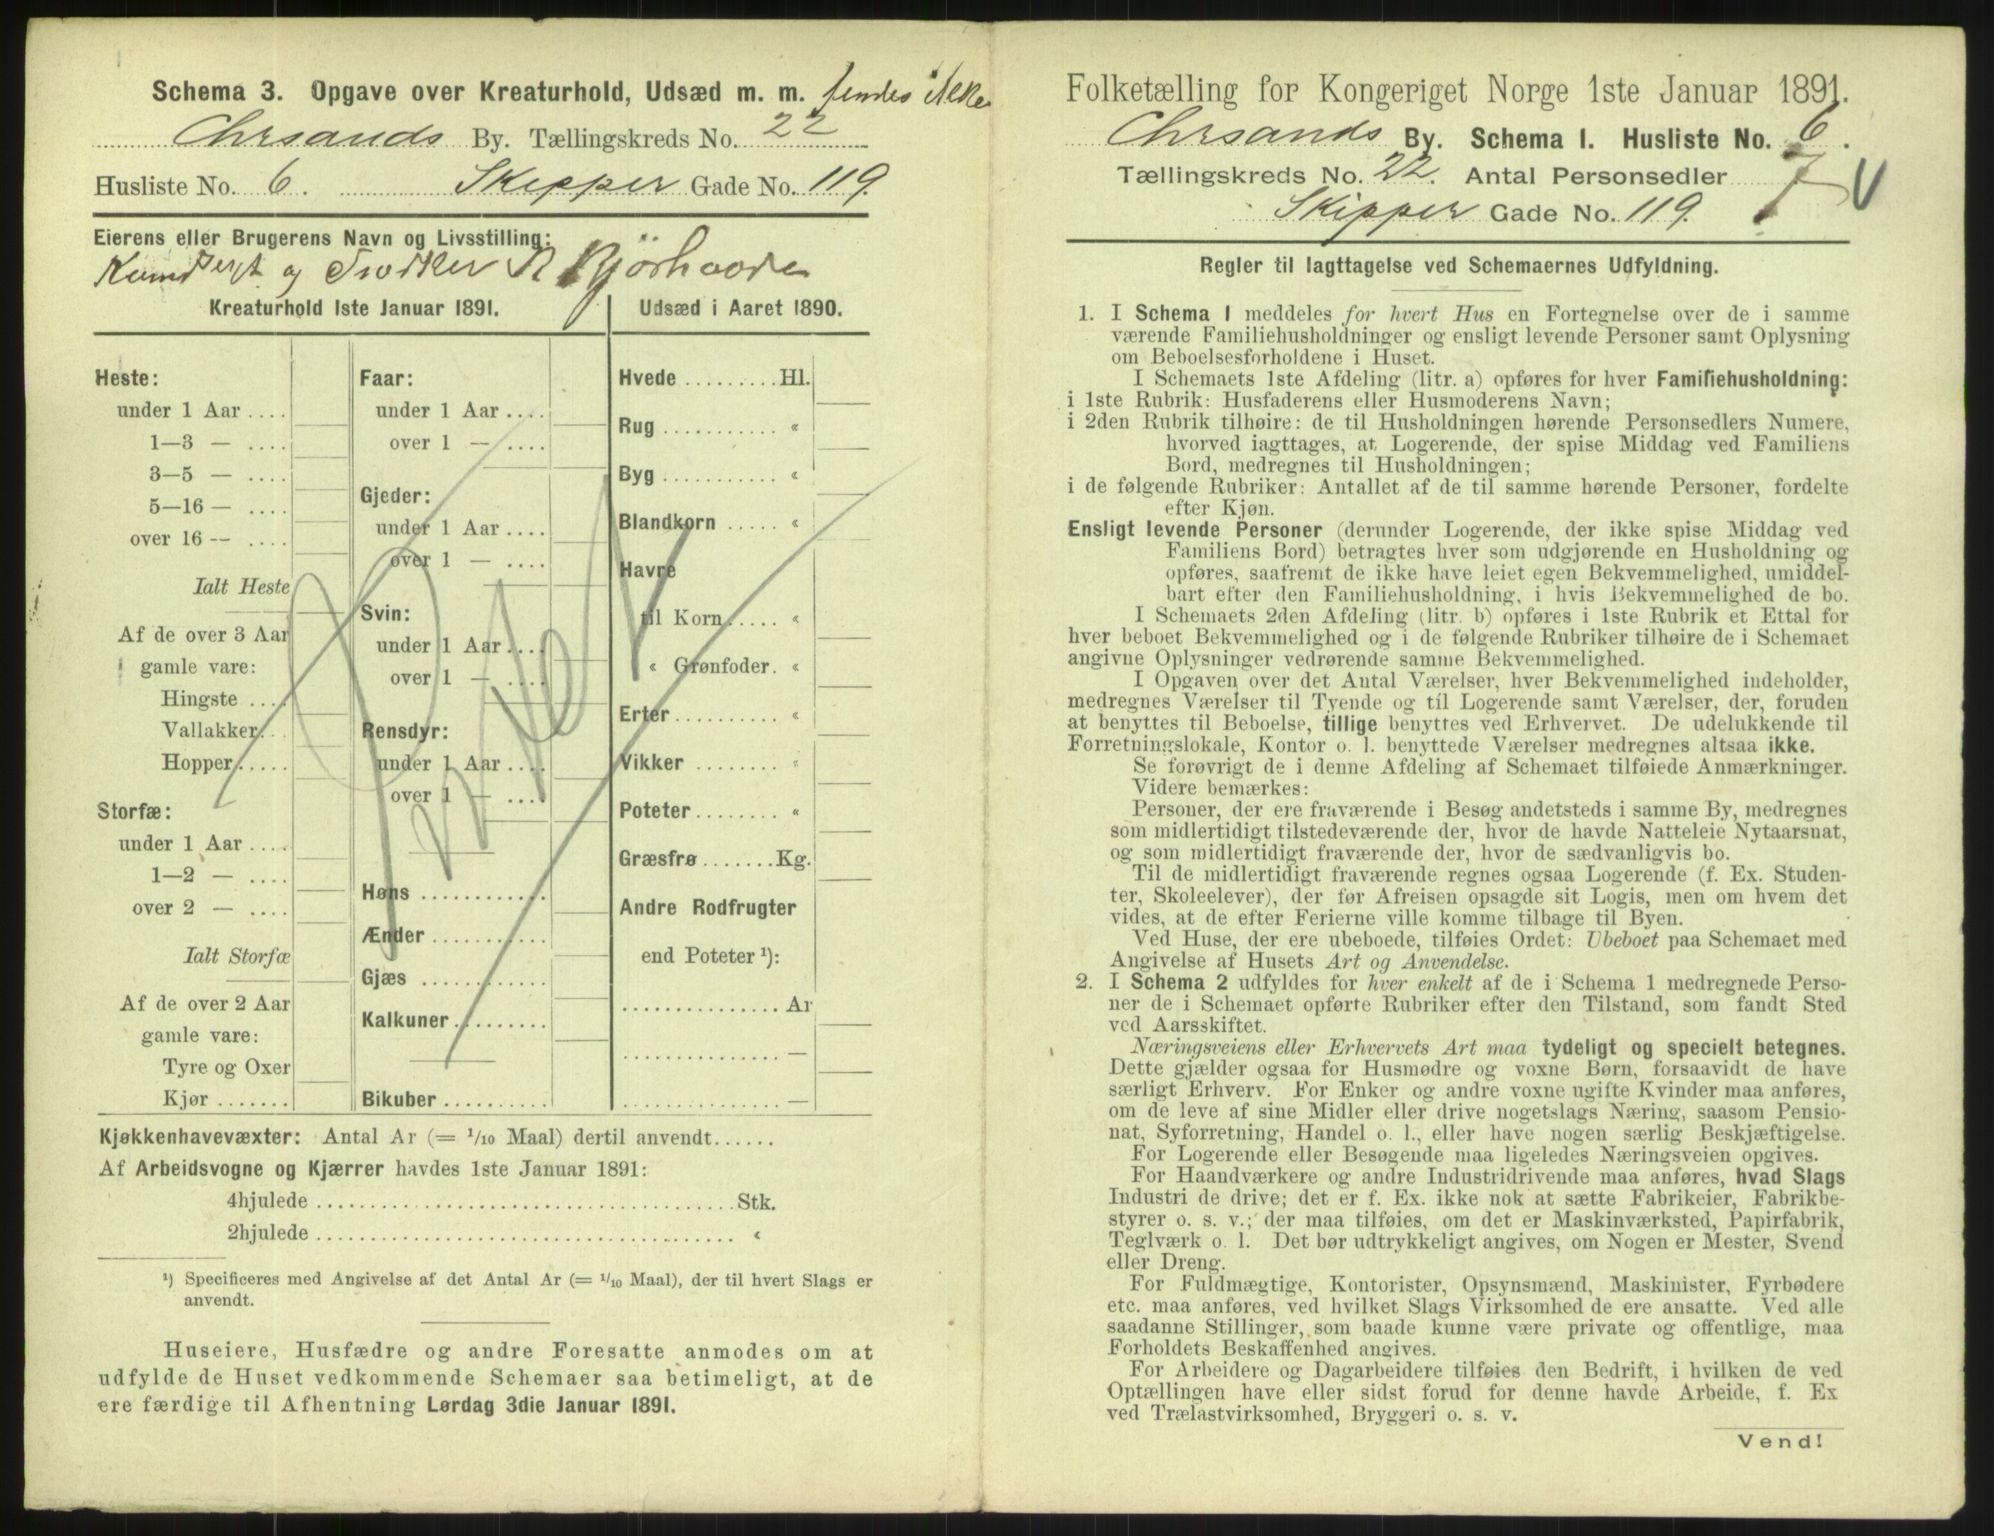 Schema 3. Opgave over Kreaturhold, Udsæd m. m. findes ikke
Chrsands By. Tællingskreds No. 22
Husliste No. 6. Skipper Gade No. 119.
Eierens eller Brugerens Navn og Livsstilling:
og Snedker
Kreaturhold 1ste Januar 1891.
Heste:
under 1 Aar ....
1—3 — ....
3—5 — ....
5—16 — ....
over 16 — ....
Ialt Heste
Af de over 3 Aar
gamle vare:
Hingste ....
Vallakker...
Hopper.....
Storfæ:
under 1 Aar ....
1—2 — ....
over 2 — ....
Ialt Storfæ
Af de over 2 Aar
gamle vare:
Tyre og Oxer
Kjør .......
Faar:
under 1 Aar ....
over 1 — ....
Gjeder:
under 1 Aar ....
over 1 — ....
Svin:
under 1 Aar ....
over 1 — ....
Rensdyr:
under 1 Aar ....
over 1 — ....
Høns ............
Ænder ...........
Gjæs ............
Kalkuner.........
Bikuber ..........
Udsæd i Aaret 1890.
Hvede .........Hl.
Rug ........... «
Byg ........... «
Blandkorn ..... «
Havre
til Korn..... «
« Grønfoder. «
Erter.......... «
Vikker ........ «
Poteter........ «
Græsfrø.......Kg.
Andre Rodfrugter
end Poteter ¹):
...............Ar
...............—
...............—
Kjøkkenhavevæxter: Antal Ar (= 1/10 Maal) dertil anvendt......
Af Arbeidsvogne og Kjærrer havdes 1ste Januar 1891:
4hjulede .......................................Stk.
2hjulede ....................................... «
¹) Specificeres med Angivelse af det Antal Ar (= 1/10 Maal), der til hvert Slags er
anvendt.
Huseiere, Husfædre og andre Foresatte anmodes om at
udfylde de Huset vedkommende Schemaer saa betimeligt, at de
ere færdige til Afhentning Lørdag 3die Januar 1891.
Folketælling for Kongeriget Norge 1ste Januar 1891.
Chrsands By. Schema I. Husliste No. 6.
Tællingskreds No. 22. Antal Personsedler 7
Skipper Gade No. 119.
Regler til Iagttagelse ved Schemaernes Udfyldning.
1. I Schema I meddeles for hvert Hus en Fortegnelse over de i samme
værende Familiehusholdninger og ensligt levende Personer samt Oplysning
om Beboelsesforholdene i Huset.
I Schemaets 1ste Afdeling (litr. a) opføres for hver Familiehusholdning:
i 1ste Rubrik: Husfaderens eller Husmoderens Navn;
i 2den Rubrik tilhøire: de til Husholdningen hørende Personsedlers Numere,
hvorved iagttages, at Logerende, der spise Middag ved Familiens
Bord, medregnes til Husholdningen;
i de følgende Rubriker: Antallet af de til samme hørende Personer, fordelte
efter Kjøn.
Ensligt levende Personer (derunder Logerende, der ikke spise Middag ved
Familiens Bord) betragtes hver som udgjørende en Husholdning og
opføres, saafremt de ikke have leiet egen Bekvemmelighed, umiddel-
bart efter den Familiehusholdning, i hvis Bekvemmelighed de bo.
I Schemaets 2den Afdeling (litr. b) opføres i 1ste Rubrik et Ettal for
hver beboet Bekvemmelighed og i de følgende Rubriker tilhøire de i Schemaet
angivne Oplysninger vedrørende samme Bekvemmelighed.
I Opgaven over det Antal Værelser, hver Bekvemmelighed indeholder,
medregnes Værelser til Tyende og til Logerende samt Værelser, der, foruden
at benyttes til Beboelse, tillige benyttes ved Erhvervet. De udelukkende til
Forretningslokale, Kontor o. l. benyttede Værelser medregnes altsaa ikke.
Se forøvrigt de i denne Afdeling af Schemaet tilføiede Anmærkninger.
Videre bemærkes:
Personer, der ere fraværende i Besøg andetsteds i samme By, medregnes
som midlertidigt tilstedeværende der, hvor de havde Natteleie Nytaarsnat,
og som midlertidigt fraværende der, hvor de sædvanligvis bo.
Til de midlertidigt fraværende regnes ogsaa Logerende (f. Ex. Studen-
ter, Skoleelever), der før Afreisen opsagde sit Logis, men om hvem det
vides, at de efter Ferierne ville komme tilbage til Byen.
Ved Huse, der ere ubeboede, tilføies Ordet: Ubeboet paa Schemaet med
Angivelse af Husets Art og Anvendelse.
2. I Schema 2 udfyldes for hver enkelt af de i Schema 1 medregnede Perso-
ner de i Schemaet opførte Rubriker efter den Tilstand, som fandt Sted
ved Aarsskiftet.
Næringsveiens eller Erhvervets Art maa tydeligt og specielt betegnes.
Dette gjælder ogsaa for Husmødre og voxne Børn, forsaavidt de have
særligt Erhverv. For Enker og andre voxne ugifte Kvinder maa anføres,
om de leve af sine Midler eller drive nogetslags Næring, saasom Pensio-
nat, Syforretning, Handel o. l., eller have nogen særlig Beskjæftigelse.
For Logerende eller Besøgende maa ligeledes Næringsveien opgives.
For Haandværkere og andre Industridrivende maa anføres, hvad Slags
Industri de drive; det er f. Ex. ikke nok at sætte Fabrikeier, Fabrikbe-
styrer o. s. v.; der maa tilføies, om det er Maskinværksted, Papirfabrik,
Teglværk o. l. Det bør udtrykkeligt angives, om Nogen er Mester, Svend
eller Dreng.
For Fuldmægtige, Kontorister, Opsynsmænd, Maskinister, Fyrbødere
etc. maa anføres, ved hvilket Slags Virksomhed de ere ansatte. Ved alle
saadanne Stillinger, som baade kunne være private og offentlige, maa
Forholdets Beskaffenhed angives.
For Arbeidere og Dagarbeidere tilføies den Bedrift, i hvilken de ved
Optællingen have eller sidst forud for denne havde Arbeide, f. Ex
ved Trælastvirksomhed, Bryggeri o. s. v.
Vend!